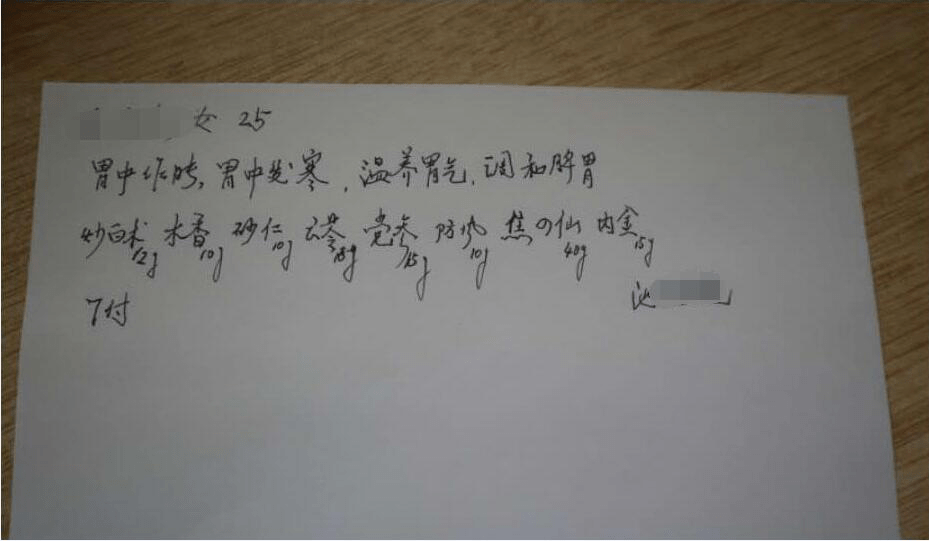 女 25
胃中作胀, 胃中发寒, 温养胃气, 调和脾胃
炒白术12g 木香10g 砂仁10g 云苓18g 党参15g 防风10g 焦四仙40g 内金15g
7付